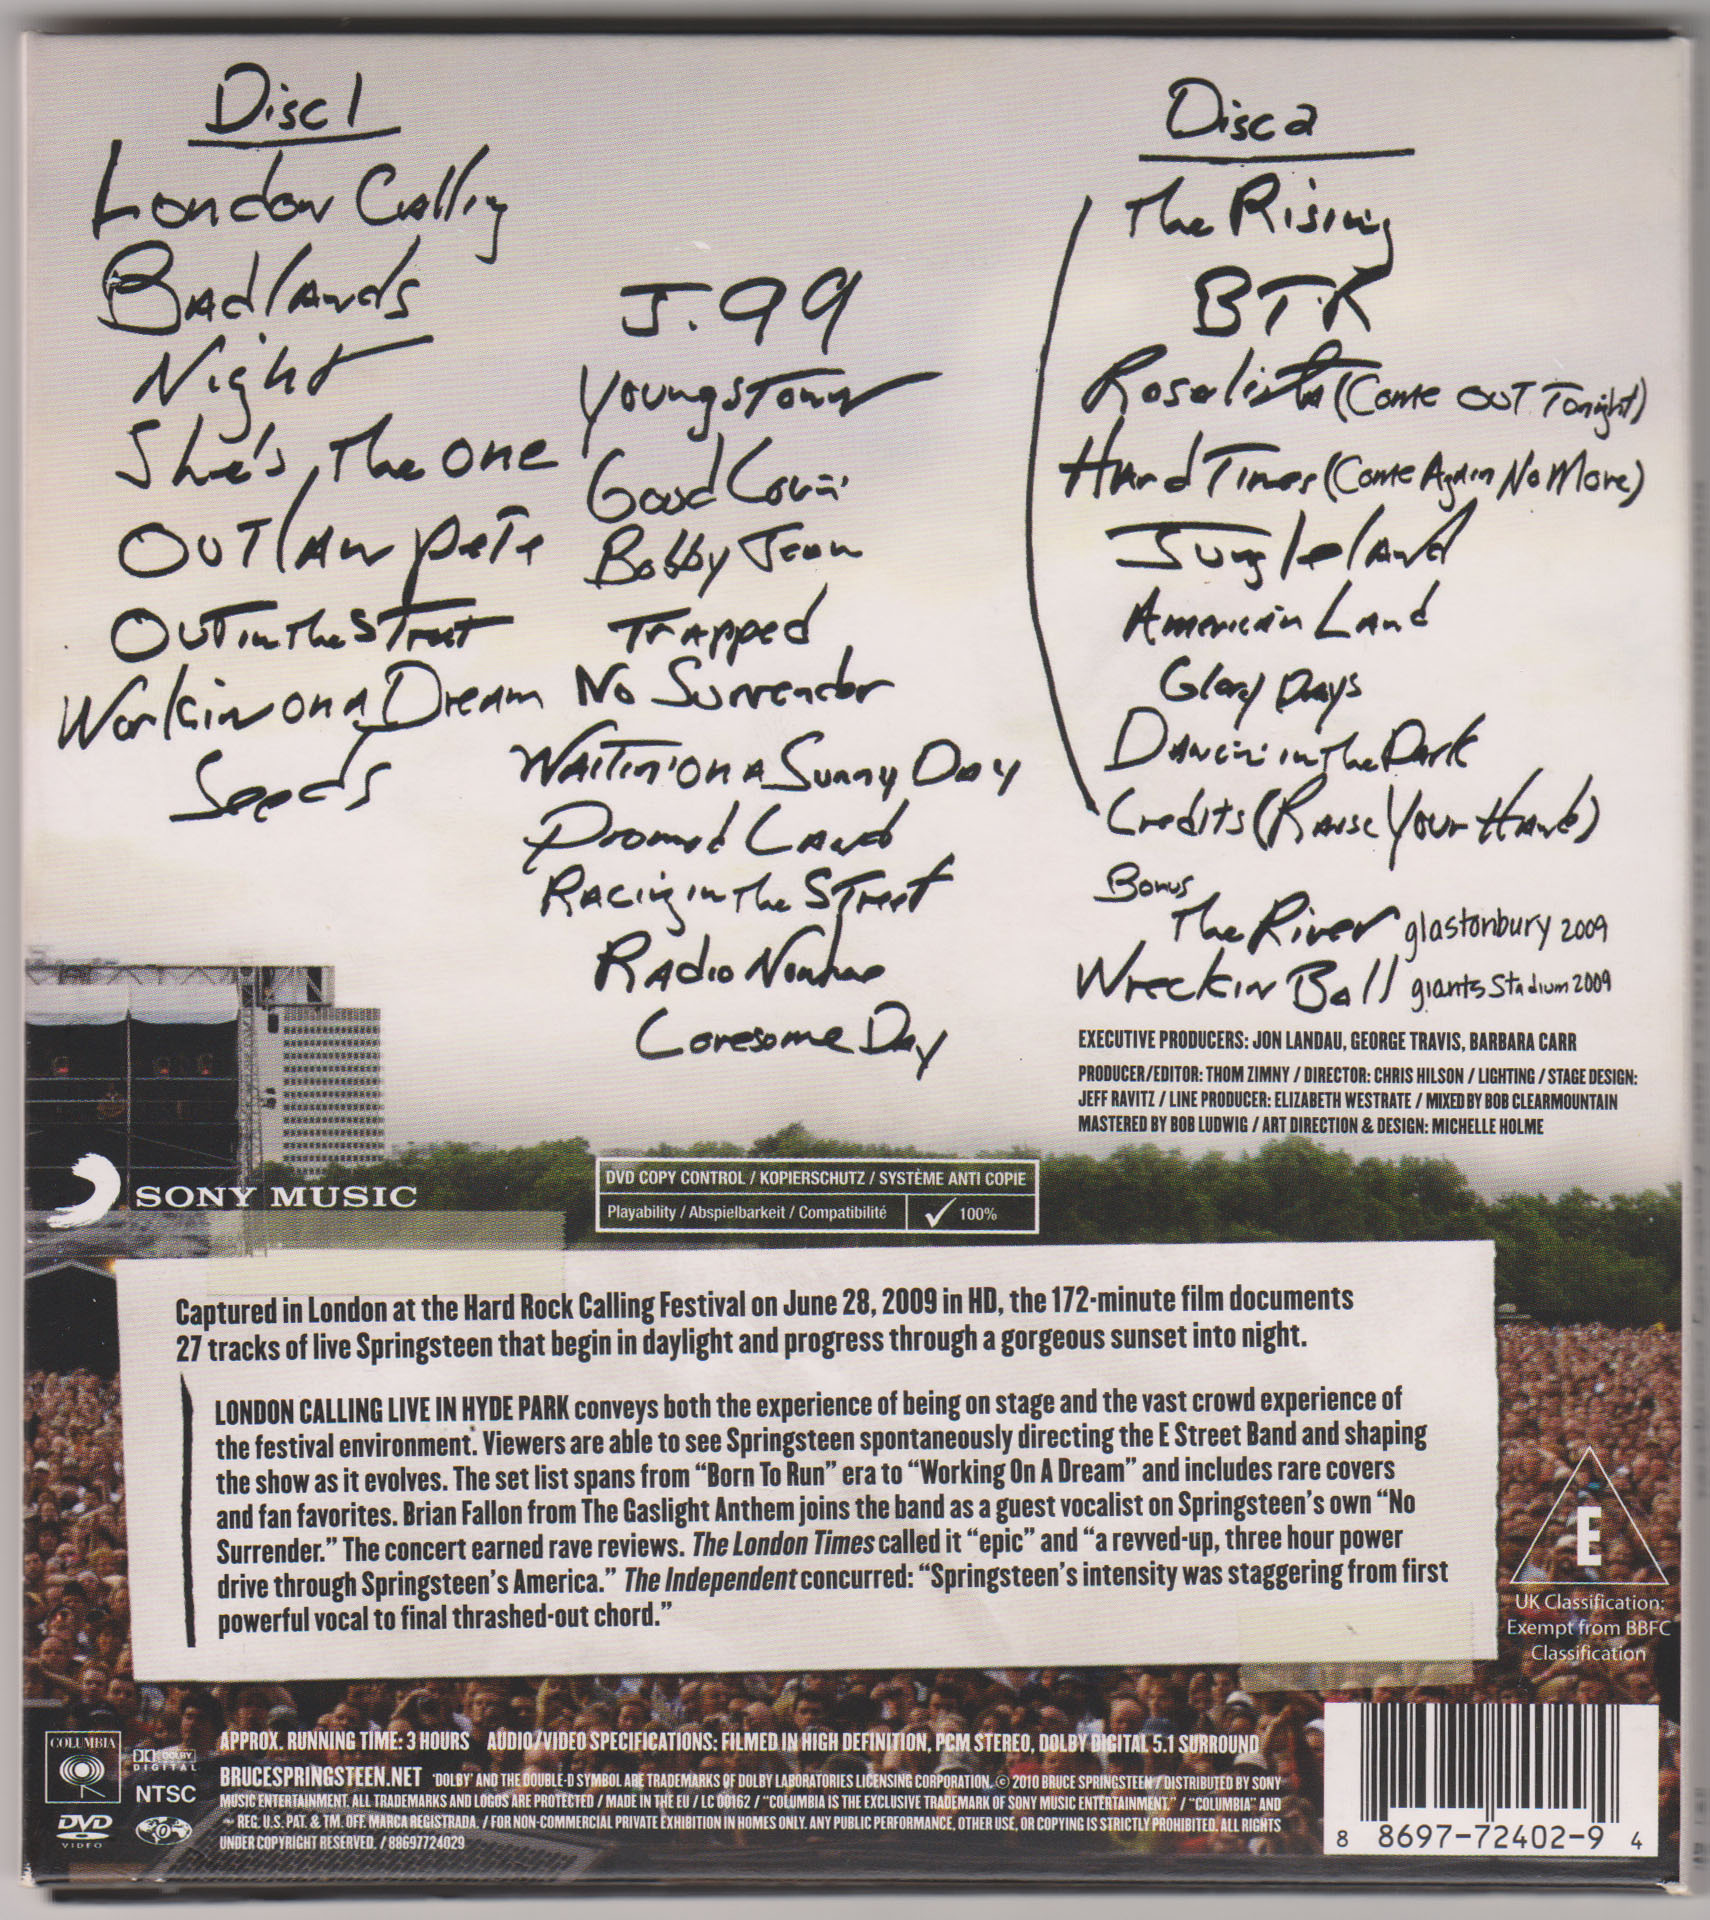 Disc 1
London Calling
Badlands
Night
She's the one
Outlaw Pete
Out in the Street
Workin on a Dream
Seeds
J. 99
Youngstown
Good Lovin'
Bobby Jean
Trapped
No Surrender
Waitin' on a Sunny Day
Promised Land
Racing in the Street
Radio Nowhere
Lonesome Day
Disc 2
The Rising
BTR
Rosalita (Come Out Tonight)
Hard Times (Come Again No More)
Jungleland
American Land
Glory Days
Dancin' in the Dark
Credits (Raise Your Hand)
Bonus
The River glastonbury 2009
Wreckin Ball giants Stadium 2009
EXECUTIVE PRODUCERS: JON LANDAU, GEORGE TRAVIS, BARBARA CARR
PRODUCER/EDITOR: THOM ZIMNY / DIRECTOR: CHRIS HILSON / LIGHTING / STAGE DESIGN:
JEFF RAVITZ / LINE PRODUCER: ELIZABETH WESTRATE / MIXED BY BOB CLEARMOUNTAIN
MASTERED BY BOB LUDWIG / ART DIRECTION & DESIGN: MICHELLE HOLME
SONY MUSIC
DVD COPY CONTROL / KOPIERSCHUTZ / SYSTÈME ANTI COPIE
Playability / Abspielbarkeit / Compatibilité 100%
Captured in London at the Hard Rock Calling Festival on June 28, 2009 in HD, the 172-minute film documents
27 tracks of live Springsteen that begin in daylight and progress through a gorgeous sunset into night.
LONDON CALLING LIVE IN HYDE PARK conveys both the experience of being on stage and the vast crowd experience of
the festival environment. Viewers are able to see Springsteen spontaneously directing the E Street Band and shaping
the show as it evolves. The set list spans from “Born To Run” era to “Working On A Dream” and includes rare covers
and fan favorites. Brian Fallon from The Gaslight Anthem joins the band as a guest vocalist on Springsteen’s own “No
Surrender.” The concert earned rave reviews. The London Times called it “epic” and “a revved-up, three hour power
drive through Springsteen’s America.” The Independent concurred: “Springsteen’s intensity was staggering from first
powerful vocal to final thrashed-out chord.”
E
UK Classification:
Exempt from BBFC
Classification
COLUMBIA
DOLBY
DIGITAL
NTSC
DVD
VIDEO
0
APPROX. RUNNING TIME: 3 HOURS AUDIO/VIDEO SPECIFICATIONS: FILMED IN HIGH DEFINITION, PCM STEREO, DOLBY DIGITAL 5.1 SURROUND
BRUCESPRINGSTEEN.NET 'DOLBY' AND THE DOUBLE-D SYMBOL ARE TRADEMARKS OF DOLBY LABORATORIES LICENSING CORPORATION. © 2010 BRUCE SPRINGSTEEN / DISTRIBUTED BY SONY
MUSIC ENTERTAINMENT. ALL TRADEMARKS AND LOGOS ARE PROTECTED / MADE IN THE EU / LC 00162 / “COLUMBIA IS THE EXCLUSIVE TRADEMARK OF SONY MUSIC ENTERTAINMENT.” / “COLUMBIA” AND
REG. U.S. PAT. & TM. OFF. MARCA REGISTRADA. / FOR NON-COMMERCIAL PRIVATE EXHIBITION IN HOMES ONLY. ANY PUBLIC PERFORMANCE, OTHER USE, OR COPYING IS STRICTLY PROHIBITED. ALL RIGHTS
UNDER COPYRIGHT RESERVED. / 88697724029
8 8697-72402-9 4